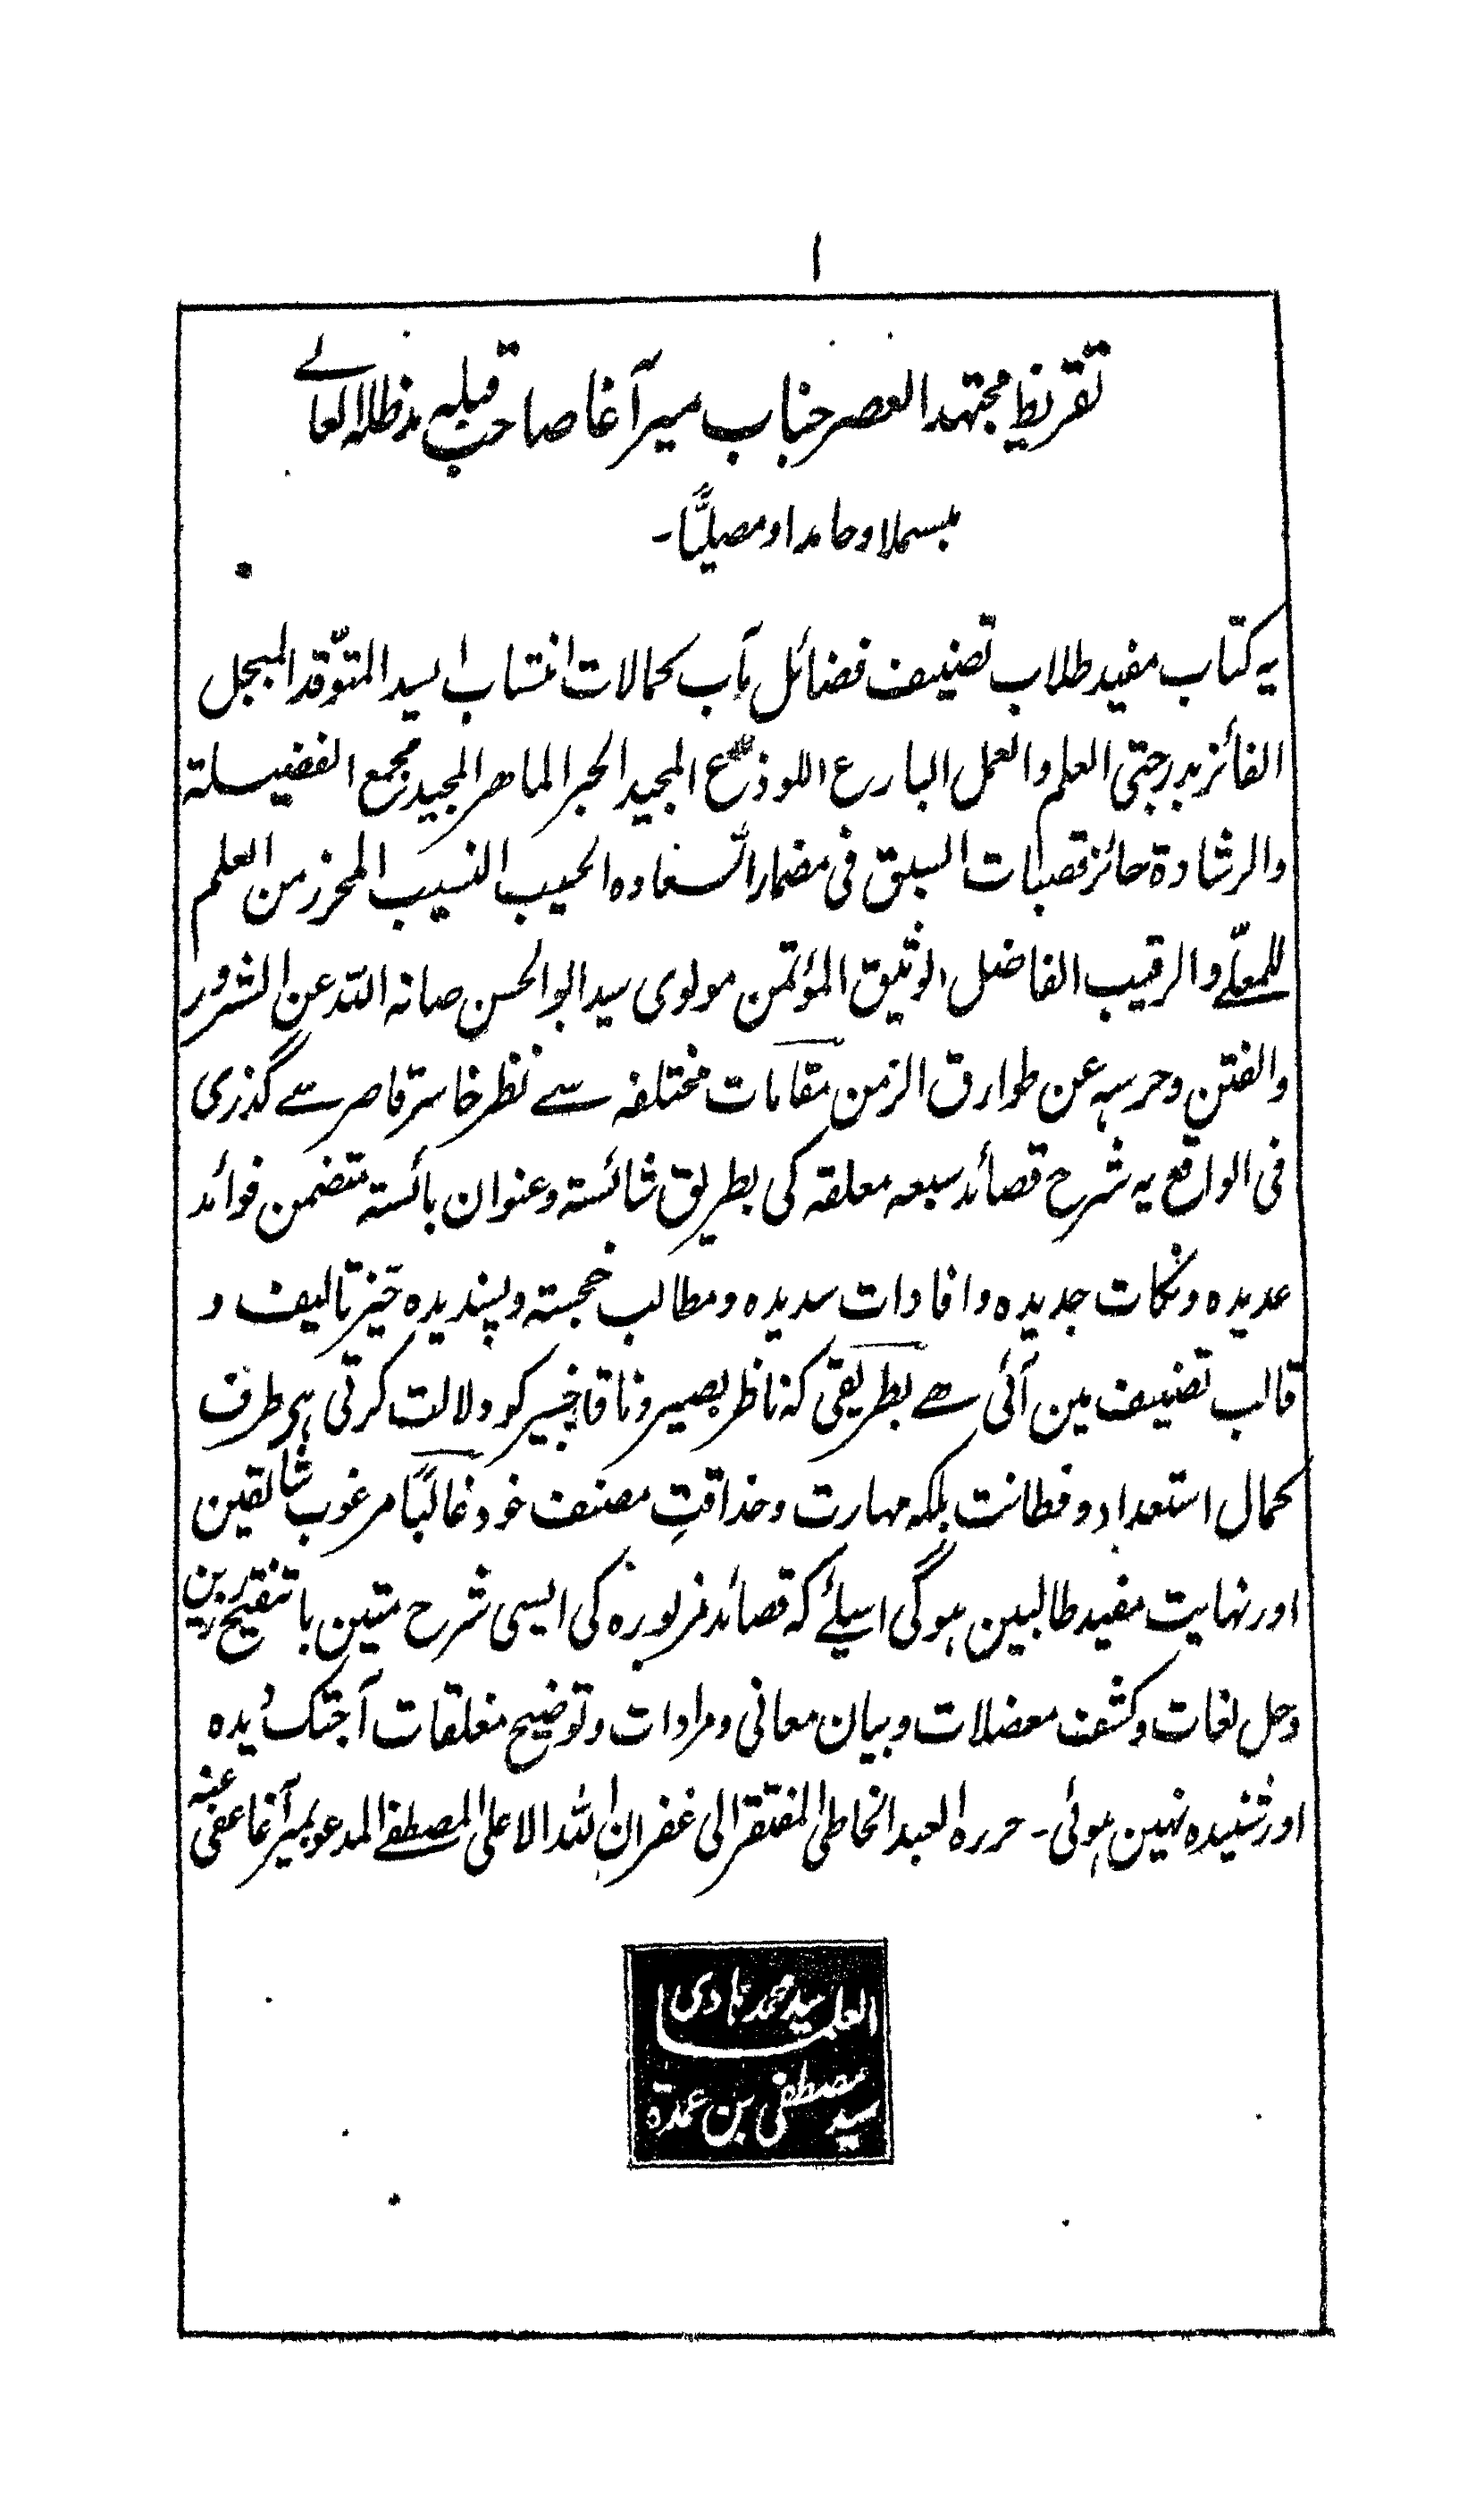 ا
تقریظ مجتہد العصر جناب میر آغا صاحب قبلہ مد ظلہ العالے
مبسملا و حامدا و مصلیًّا۔
یہ کتاب مفید طلاب تصنیف فضائل مآب کمالات انتساب السید المتوّقد المبجل
الفائز بدرجتی العلم والعمل البارع اللوذعی المجید الحبر الماھر المجید مجمع الفضیلة
والرشادة حائز قصبات السبق فی مضمار السعاده الحسیب النسیب المحرز من العلم
للمعلّے والرقیب الفاضل الوثیق المؤتمن مولوی سید ابوالحسن صانہ اللہ عن الشرور
والفتن وحرسہ عن طوارق الزمن مقامات مختلفہ سے نظر خاسر قاصر سے گذری
فی الواقع یہ شرح قصائد سبعہ معلقہ کی بطریق شائستہ و عنوان بائستہ متضمن فوائد
عدیدہ و نکات جدیدہ و افادات سدیدہ و مطالب خجستہ و پسندیدہ حیز تالیف و
قالب تصنیف مین آئی ہے بطریقی کہ ناظر بصیر و ناقد خبیر کو دلالت کرتی ہی طرف
کمال استعداد و فطانت بلکہ مہارت و حذاقتِ مصنف خود غالبًا مرغوب شائقین
اور نہایت مفید طالبین ہوگی اسیلئے کہ قصائد مزبورہ کی ایسی شرح متین با تنقیح رزین
وحل لغات و کشف معضلات و بیان معانی و مرادات و توضیح مغلقات آجتک دیدہ
اور شنیدہ نہین ہوئی۔ حررہ العبد الخاطی المفتقر الی غفران اللہ الاعلی المصطفے المدعو بمیر آغا عفی عنہ
العلماء سید محمد ہادی
سید مصطفی بن عمدة